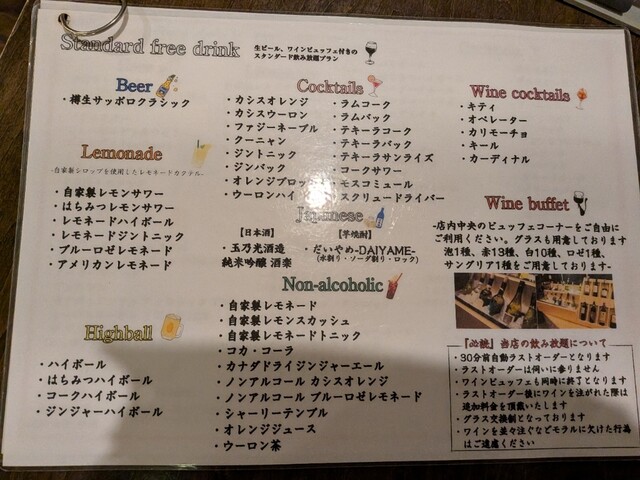 Standard free drink
生ビール、ワインビュッフェ付きの
スタンダード飲み放題プラン
Beer
・樽生サッポロクラシック
Lemonade
-自家製シロップを使用したレモネードカクテル-
・自家製レモンサワー
・はちみつレモンサワー
・レモネードハイボール
・レモネードジントニック
・ブルーロゼレモネード
・アメリカンレモネード
Highball
・ハイボール
・はちみつハイボール
・コークハイボール
・ジンジャーハイボール
Cocktails
・カシスオレンジ
・カシスウーロン
・ファジーネーブル
・クーニャン
・ジントニック
・ジンバック
・オレンジブロッ
・ウーロンハイ
・ラムコーク
・ラムバック
・テキーラコーク
・テキーラバック
・テキーラサンライズ
・コークサワー
・モスコミュール
・スクリュードライバー
Japanese
【日本酒】
・玉乃光酒造
純米吟醸 酒楽
【芋焼酎】
・だいやめ-DAIYAME-
(水割り・ソーダ割り・ロック)
Non-alcoholic
・自家製レモネード
・自家製レモンスカッシュ
・自家製レモネードトニック
・コカ・コーラ
・カナダドライジンジャーエール
・ノンアルコール カシスオレンジ
・ノンアルコール ブルーロゼレモネード
・シャーリーテンプル
・オレンジジュース
・ウーロン茶
Wine cocktails
・キティ
・オペレーター
・カリモーチョ
・キール
・カーディナル
Wine buffet
-店内中央のビュッフェコーナーをご自由に
ご利用ください。グラスも用意しております
泡1種、赤13種、白10種、ロゼ1種、
サングリア1種をご用意しております-
『必読』当店の飲み放題について
・30分前自動ラストオーダーとなります
・ラストオーダーは伺いに参りません
・ワインビュッフェも同時に終了となります
・ラストオーダー後にワインを注がれた際は
追加料金を頂戴いたします
・グラス交換制となっております
・ワインを並々注ぐなどモラルに欠けた行為
はご遠慮ください